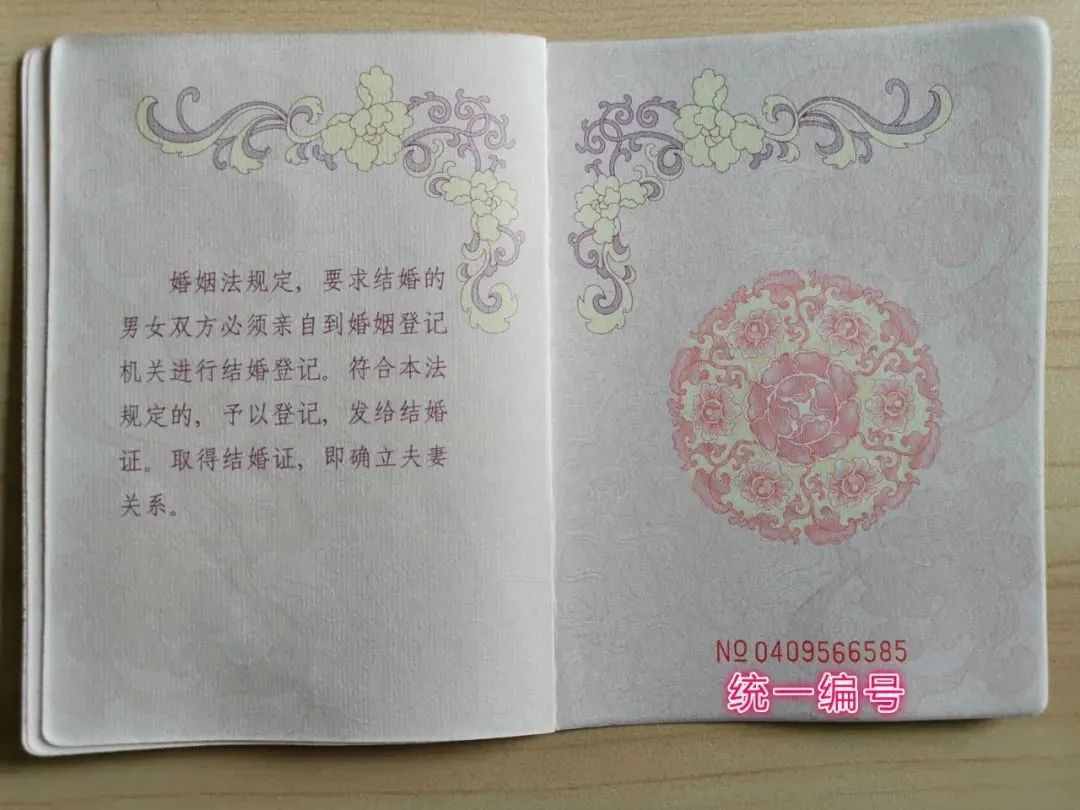 婚姻法规定，要求结婚的
男女双方必须亲自到婚姻登记
机关进行结婚登记。符合本法
规定的，予以登记，发给结婚
证。取得结婚证，即确立夫妻
关系。
Nº 0409566585
统一编号